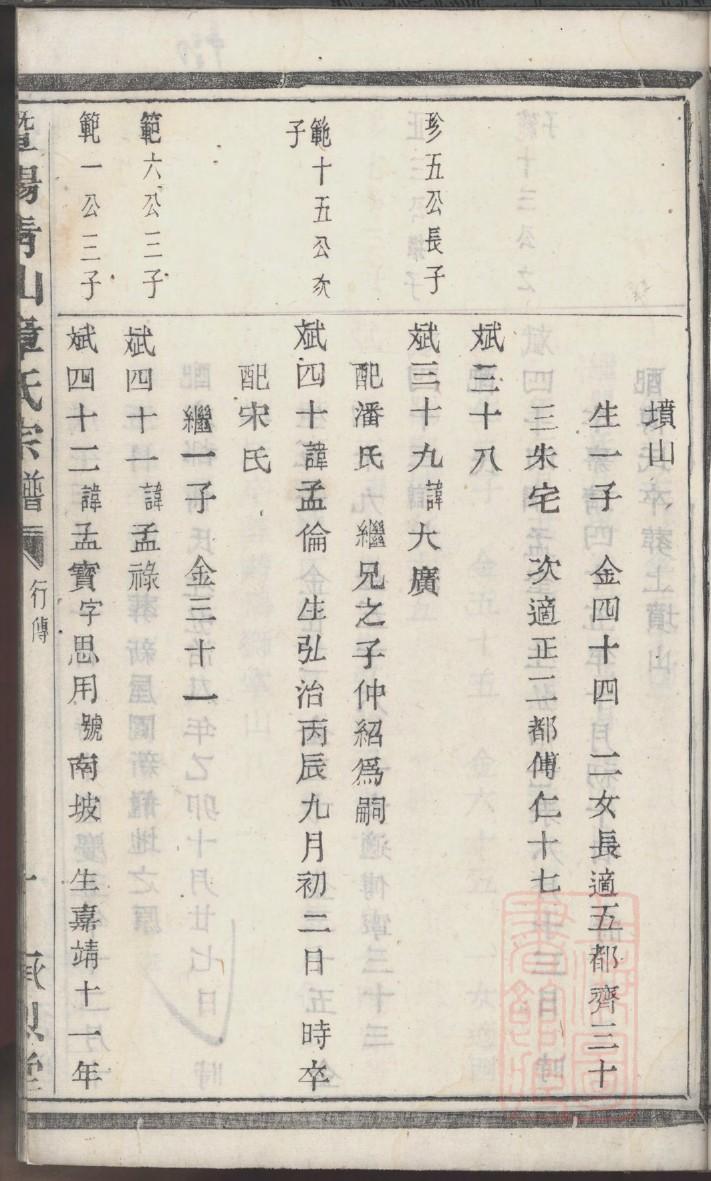 墳山
生一子 金四十四 二女長適五都齊三十
三朱宅 次適正二都傅仁十七
斌三十八
珍五公長子
斌三十九諱大廣
配潘氏 繼兄之子仲紹爲嗣
範十五公次子
斌四十諱孟倫 生弘治丙辰九月初二日時卒
配宋氏
繼一子 金三十一
範六公三子
斌四十一諱孟祿
範一公三子
斌四十二諱孟寳字思用號南坡 生嘉靖十一年
暨陽靑山章氏宗譜
行傳